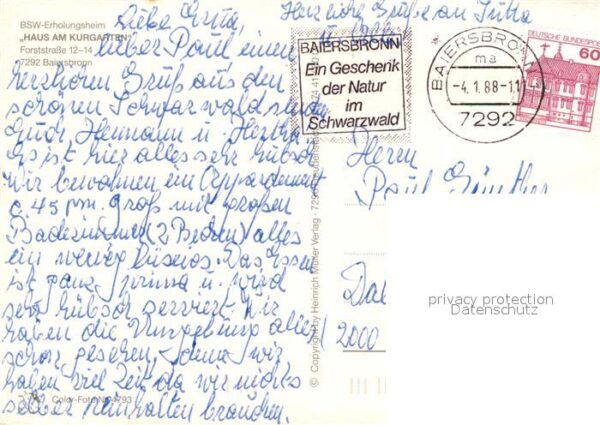 BSW-Erholungsheim
„HAUS AM KURGARTEN"
Forststraße 12–14
7292 Baiersbronn
Liebe Erna,
lieber Paul einen
herzlichen Gruß aus dem
schönen Schwarzwald senden
Euch, Hermann u. Hertha
Es ist hier alles sehr hübsch
wir bewohnen ein Appartement
c. 45 qm. groß mit großem
Badezimmer (2 Becken) alles
ein wenig luxiös. Das Essen
ist ganz prima u. wird
sehr hübsch serviert. Wir
haben die Umgebung alles
schon gesehen, denn wir
haben viel Zeit da wir nichts
selber reinhalten brauchen.
Color-Foto Nr. 4793
Herzliche Grüße an Jutta
u.
BAIERSBRONN
Ein Geschenk
der Natur
im
Schwarzwald
BAIERSBRONN
ma
-4.1.88-11
7292
DEUTSCHE BUNDESPOST
60
© Copyright by Heinrich Müller Verlag · 729
Herrn
Paul Günther
2000
privacy protection
Datenschutz